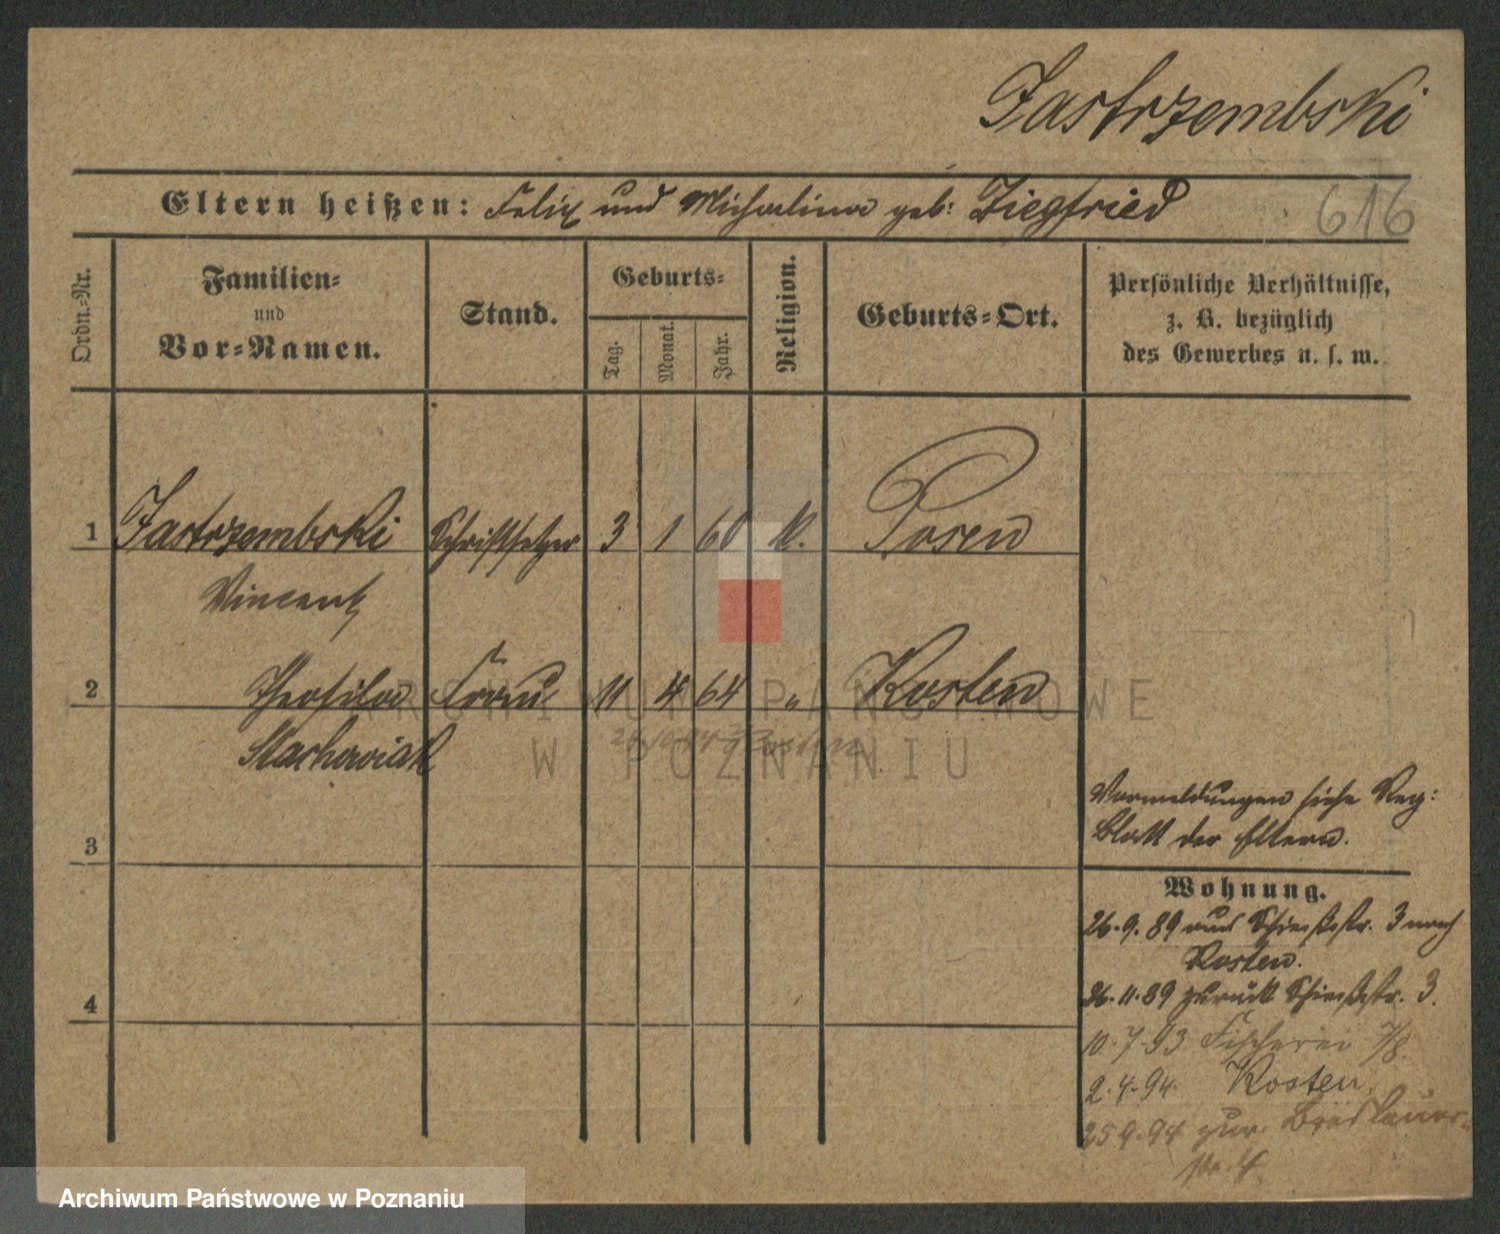 Jastrzembski
Eltern heißen: Felix und Michalina geb: Ziegfried
616
Ordn.-Nr.
Familien-
und
Vor-Namen.
Stand.
Geburts-
Tag.
Monat.
Jahr.
Religion.
Geburts-Ort.
Persönliche Verhältnisse,
z. B. bezüglich
des Gewerbes u. s. w.
1 Jastrzembski Schriftsetzer 3 1 60 k. Posen
Vincent
2 Theofila Frau 11 4 64 " Kosten
Stachowiak
3
Vormeldungen siehe Reg:
Blatt der Eltern.
Wohnung.
26.9.89 aus Schießstr. 3 nach
Kosten.
26.11.89 zurück Schießstr. 3.
4
10.7.93 Fischerei 7/8
2.4.94 Kosten
25.9.94 zur. Breslauer-
str. 4
ARCHIWUM PAŃSTWOWE
W POZNANIU
Archiwum Państwowe w Poznaniu